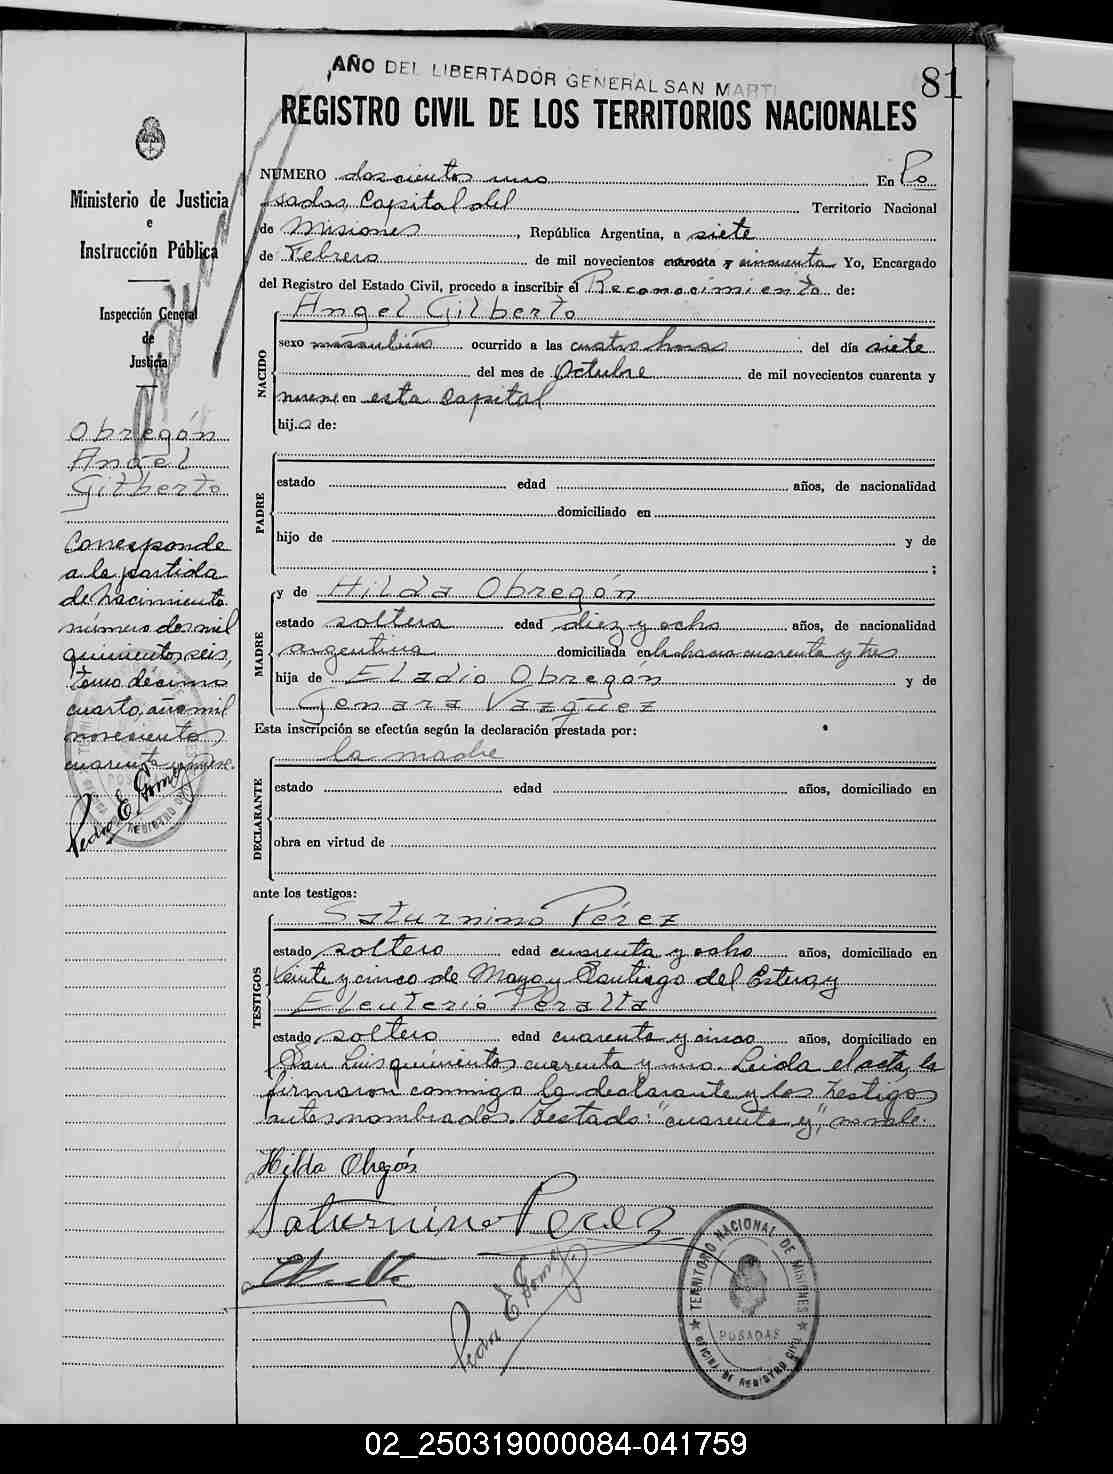 AÑO DEL LIBERTADOR GENERAL SAN MARTI
81
REGISTRO CIVIL DE LOS TERRITORIOS NACIONALES
Ministerio de Justicia
e
Instrucción Pública
Inspección General
de
Justicia
Obregón
Angel
Gilberto
Corresponde
a la partida
de nacimiento
número dos mil
quinientos seis,
tomo décimo
cuarto, año mil
novecientos
cuarenta y nueve.
Pedro E Gomez
NÚMERO doscientos uno En Po
sadas, Capital del Territorio Nacional
de Misiones, República Argentina, a siete
de Febrero de mil novecientos cuarenta y cincuenta Yo, Encargado
del Registro del Estado Civil, procedo a inscribir el Reconocimiento de:
NACIDO
Angel Gilberto
sexo masculino ocurrido a las cuatro horas del día siete
del mes de Octubre de mil novecientos cuarenta y
nueve en esta Capital
hijo de:
PADRE
estado edad años, de nacionalidad
domiciliado en
hijo de y de
;
MADRE
y de Hilda Obregón
estado soltera edad diez y ocho años, de nacionalidad
argentina domiciliada en chacra cuarenta y tres
hija de Eladio Obregón y de
Genara Vazquez
Esta inscripción se efectúa según la declaración prestada por:
DECLARANTE
la madre
estado edad años, domiciliado en
obra en virtud de
ante los testigos:
TESTIGOS
Saturnino Pérez
estado soltero edad cuarenta y ocho años, domiciliado en
Veinte y cinco de Mayo y Santiago del Estero, y
Eleuterio Peralta
estado soltero edad cuarenta y cinco años, domiciliado en
San Luis quinientos cuarenta y uno. Leida el acta, la
firmaron conmigo la declarante y los testigos
antes nombrados. Testado: "cuarenta y", no vale.
Hilda Obregón
Saturnino Perez
Pedro E Gomez
TERRITORIO NACIONAL DE MISIONES
POSADAS
OFICINA DE REGISTRO CIVIL
02_250319000084-041759